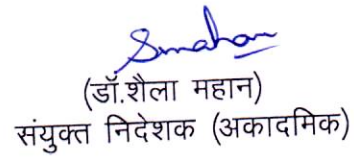 Smahan
(डॉ.शैला महान)
संयुक्त निदेशक (अकादमिक)